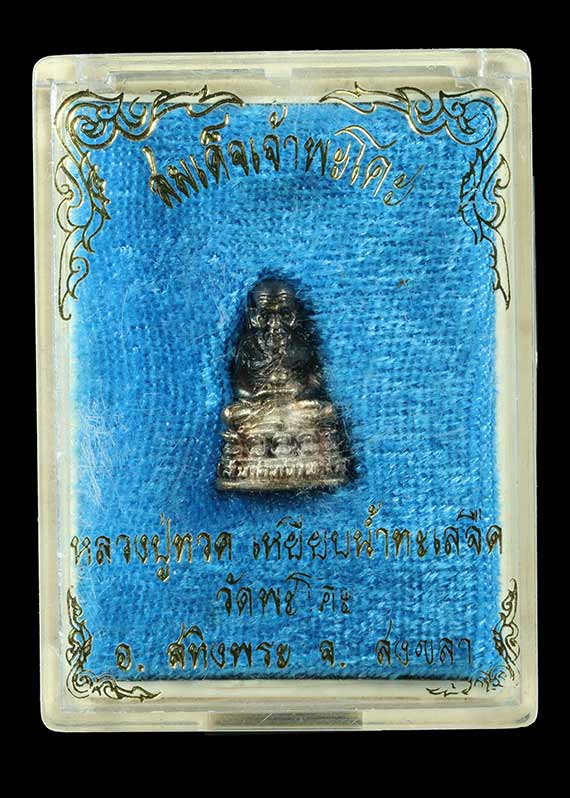 สมเด็จเจ้าพะโคะ
หลวงปู่ทวด เหยียบน้ำทะเลจืด
วัดพะโคะ
อ. สทิงพระ จ. สงขลา